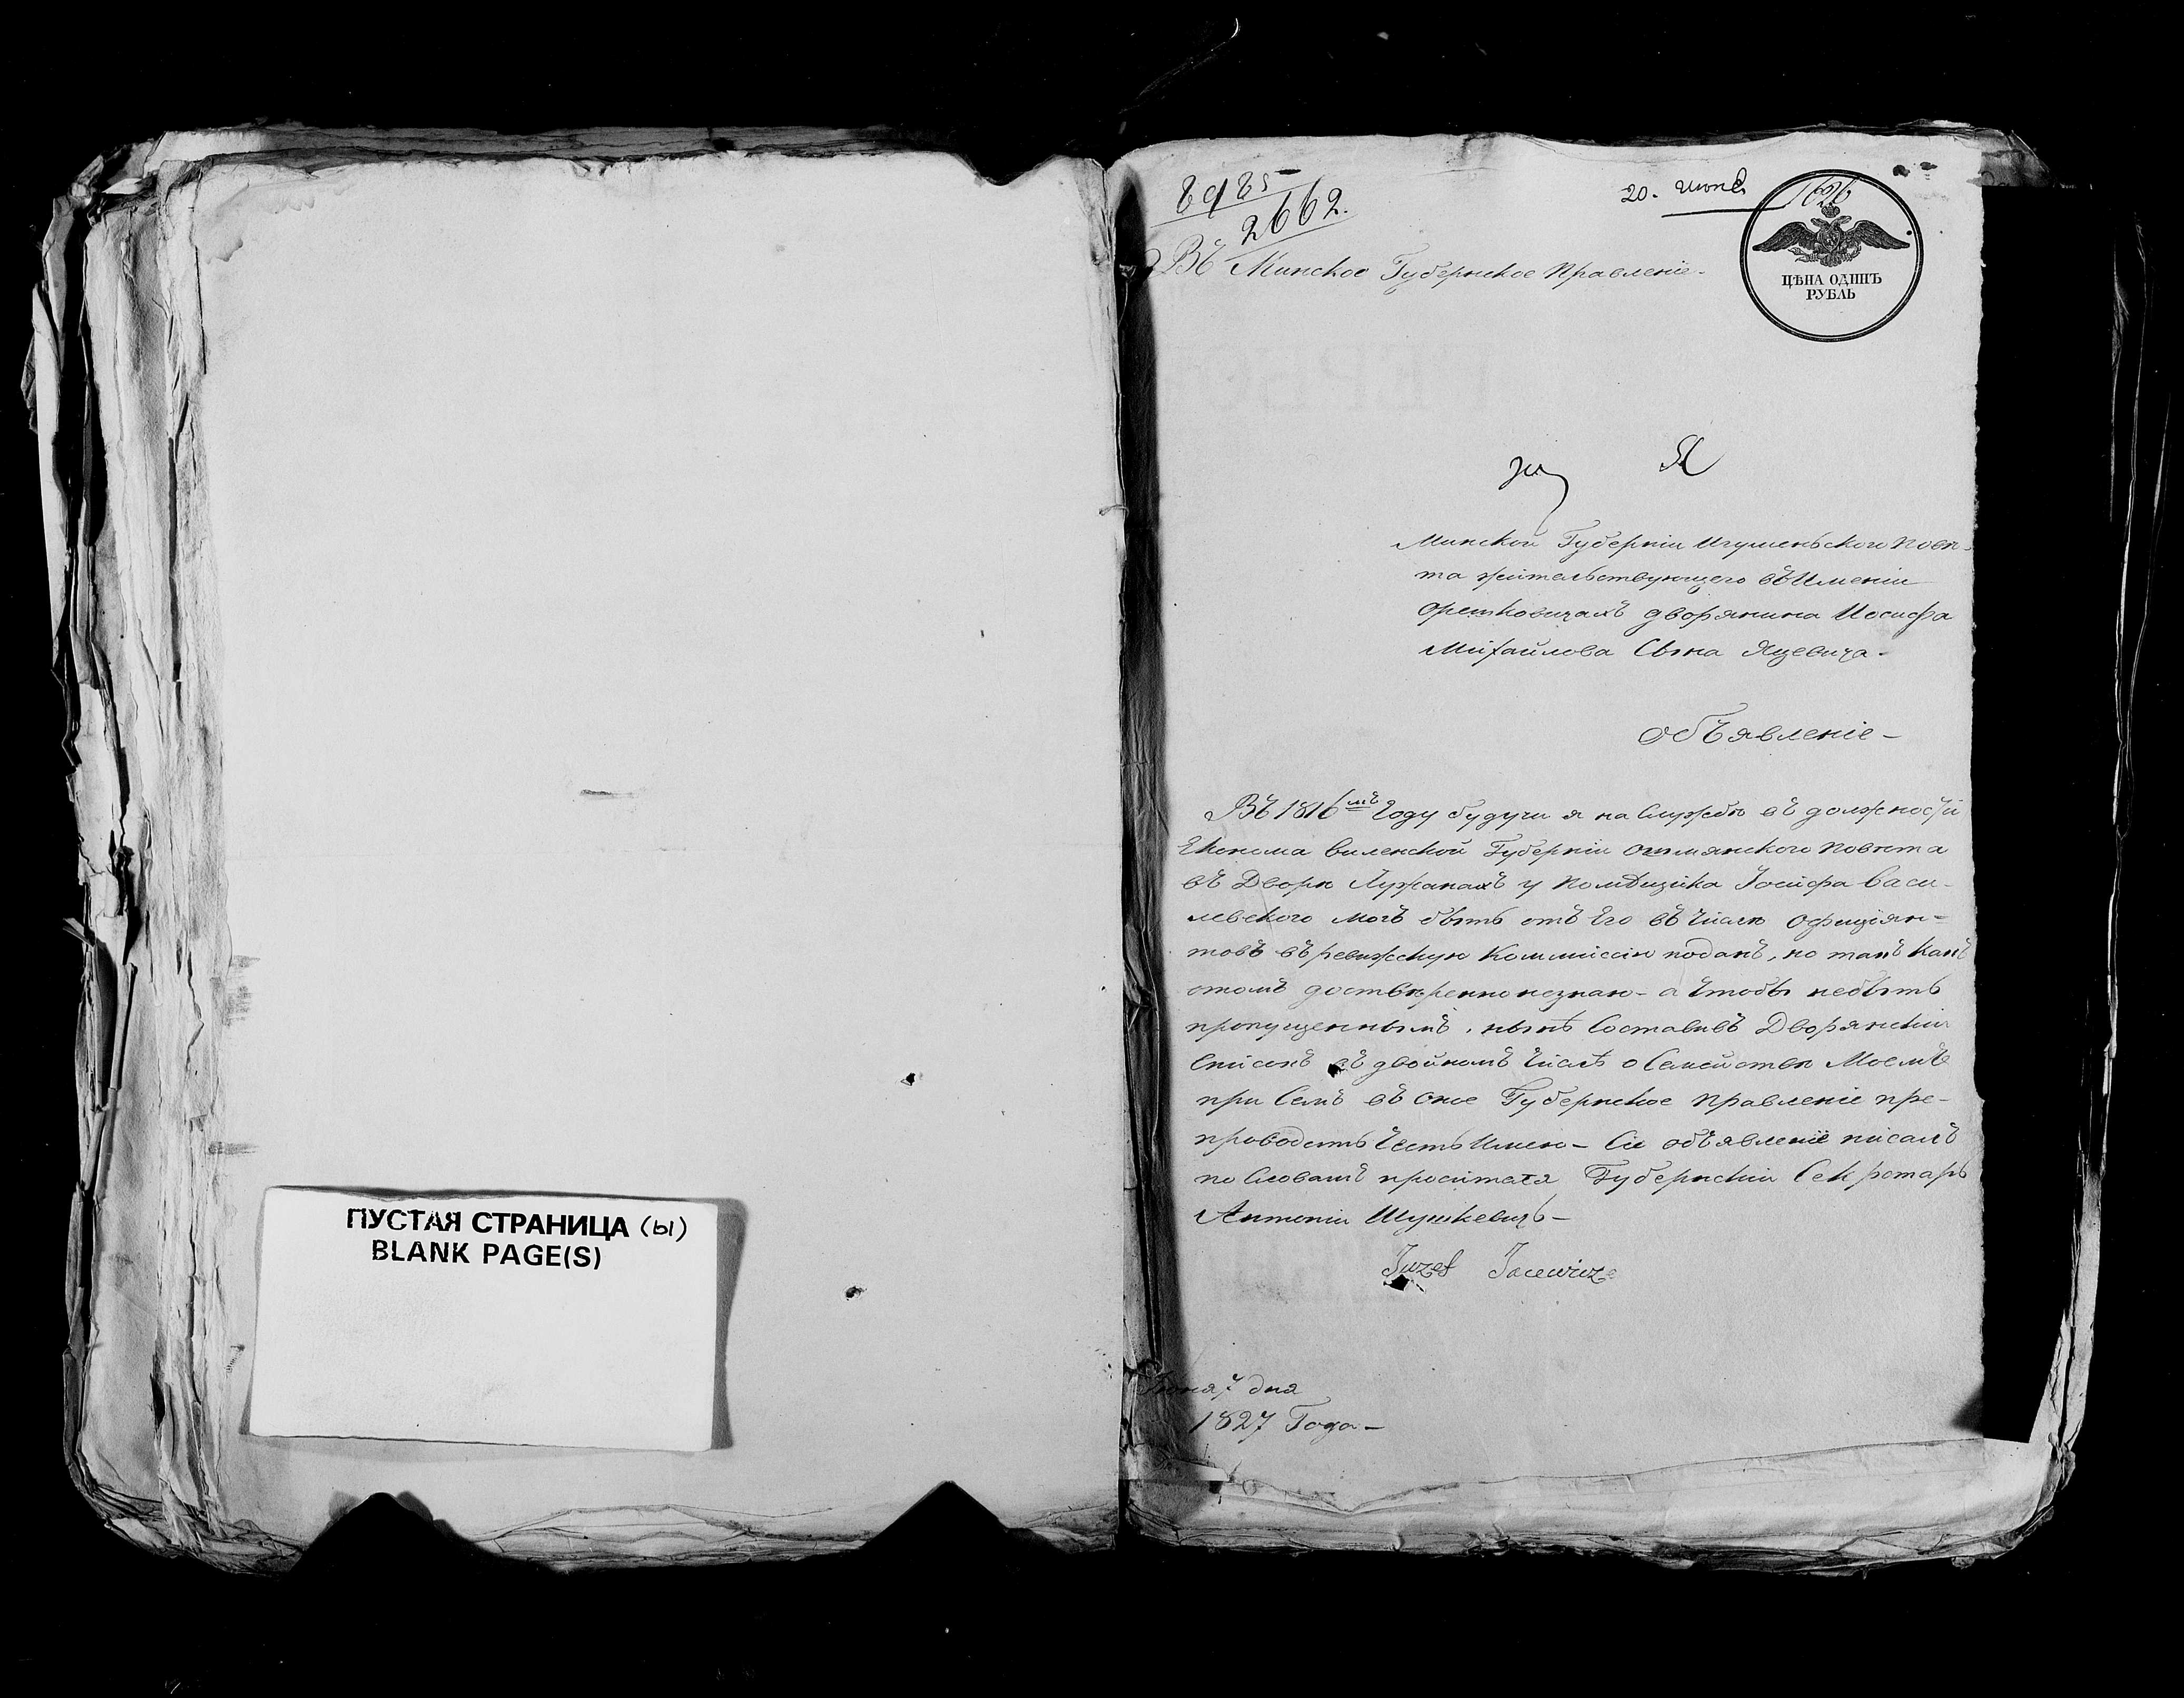 ПУСТАЯ СТРАНИЦА (ы)
BLANK PAGE(S)
2662.
20. июня
ЦѢНА ОДИНЪ
РУБЛЬ
Въ Минское Губернское Правленіе
Я
Минской Губерніи Игуменьского Повѣ-
та жительствующего въ Имѣніи
Орешковичахъ дворянина Иосифа
Михайлова Сына Яцевича -
Объявленіе -
Въ 1816мъ Году будучи я на Службѣ въ должности
Економа Виленской Губерніи Ошмянского Повѣта
въ Дворѣ Лужанахъ у Помѣщика Іосифа Васи-
левского могъ быть отъ Его въ Числѣ Офиціян-
товъ въ ревижскую Коммиссію поданъ, но такъ какъ
отомъ достовѣренно незнаю - а Чтобы небыть
пропущеннымъ, нынѣ Составивъ Дворянскій
Списокъ въ двойномъ Числѣ о Семействѣ Моемъ
при Семъ въ Оное Губернское Правленіе пре-
проводить Честь Имею - Сіе объявленіе писалъ
по Словамъ просителя Губернскій Секретарь
Антоній Шушкевичъ -
Juzef Jacewicz
Іюня 7 дня
1827 Года -